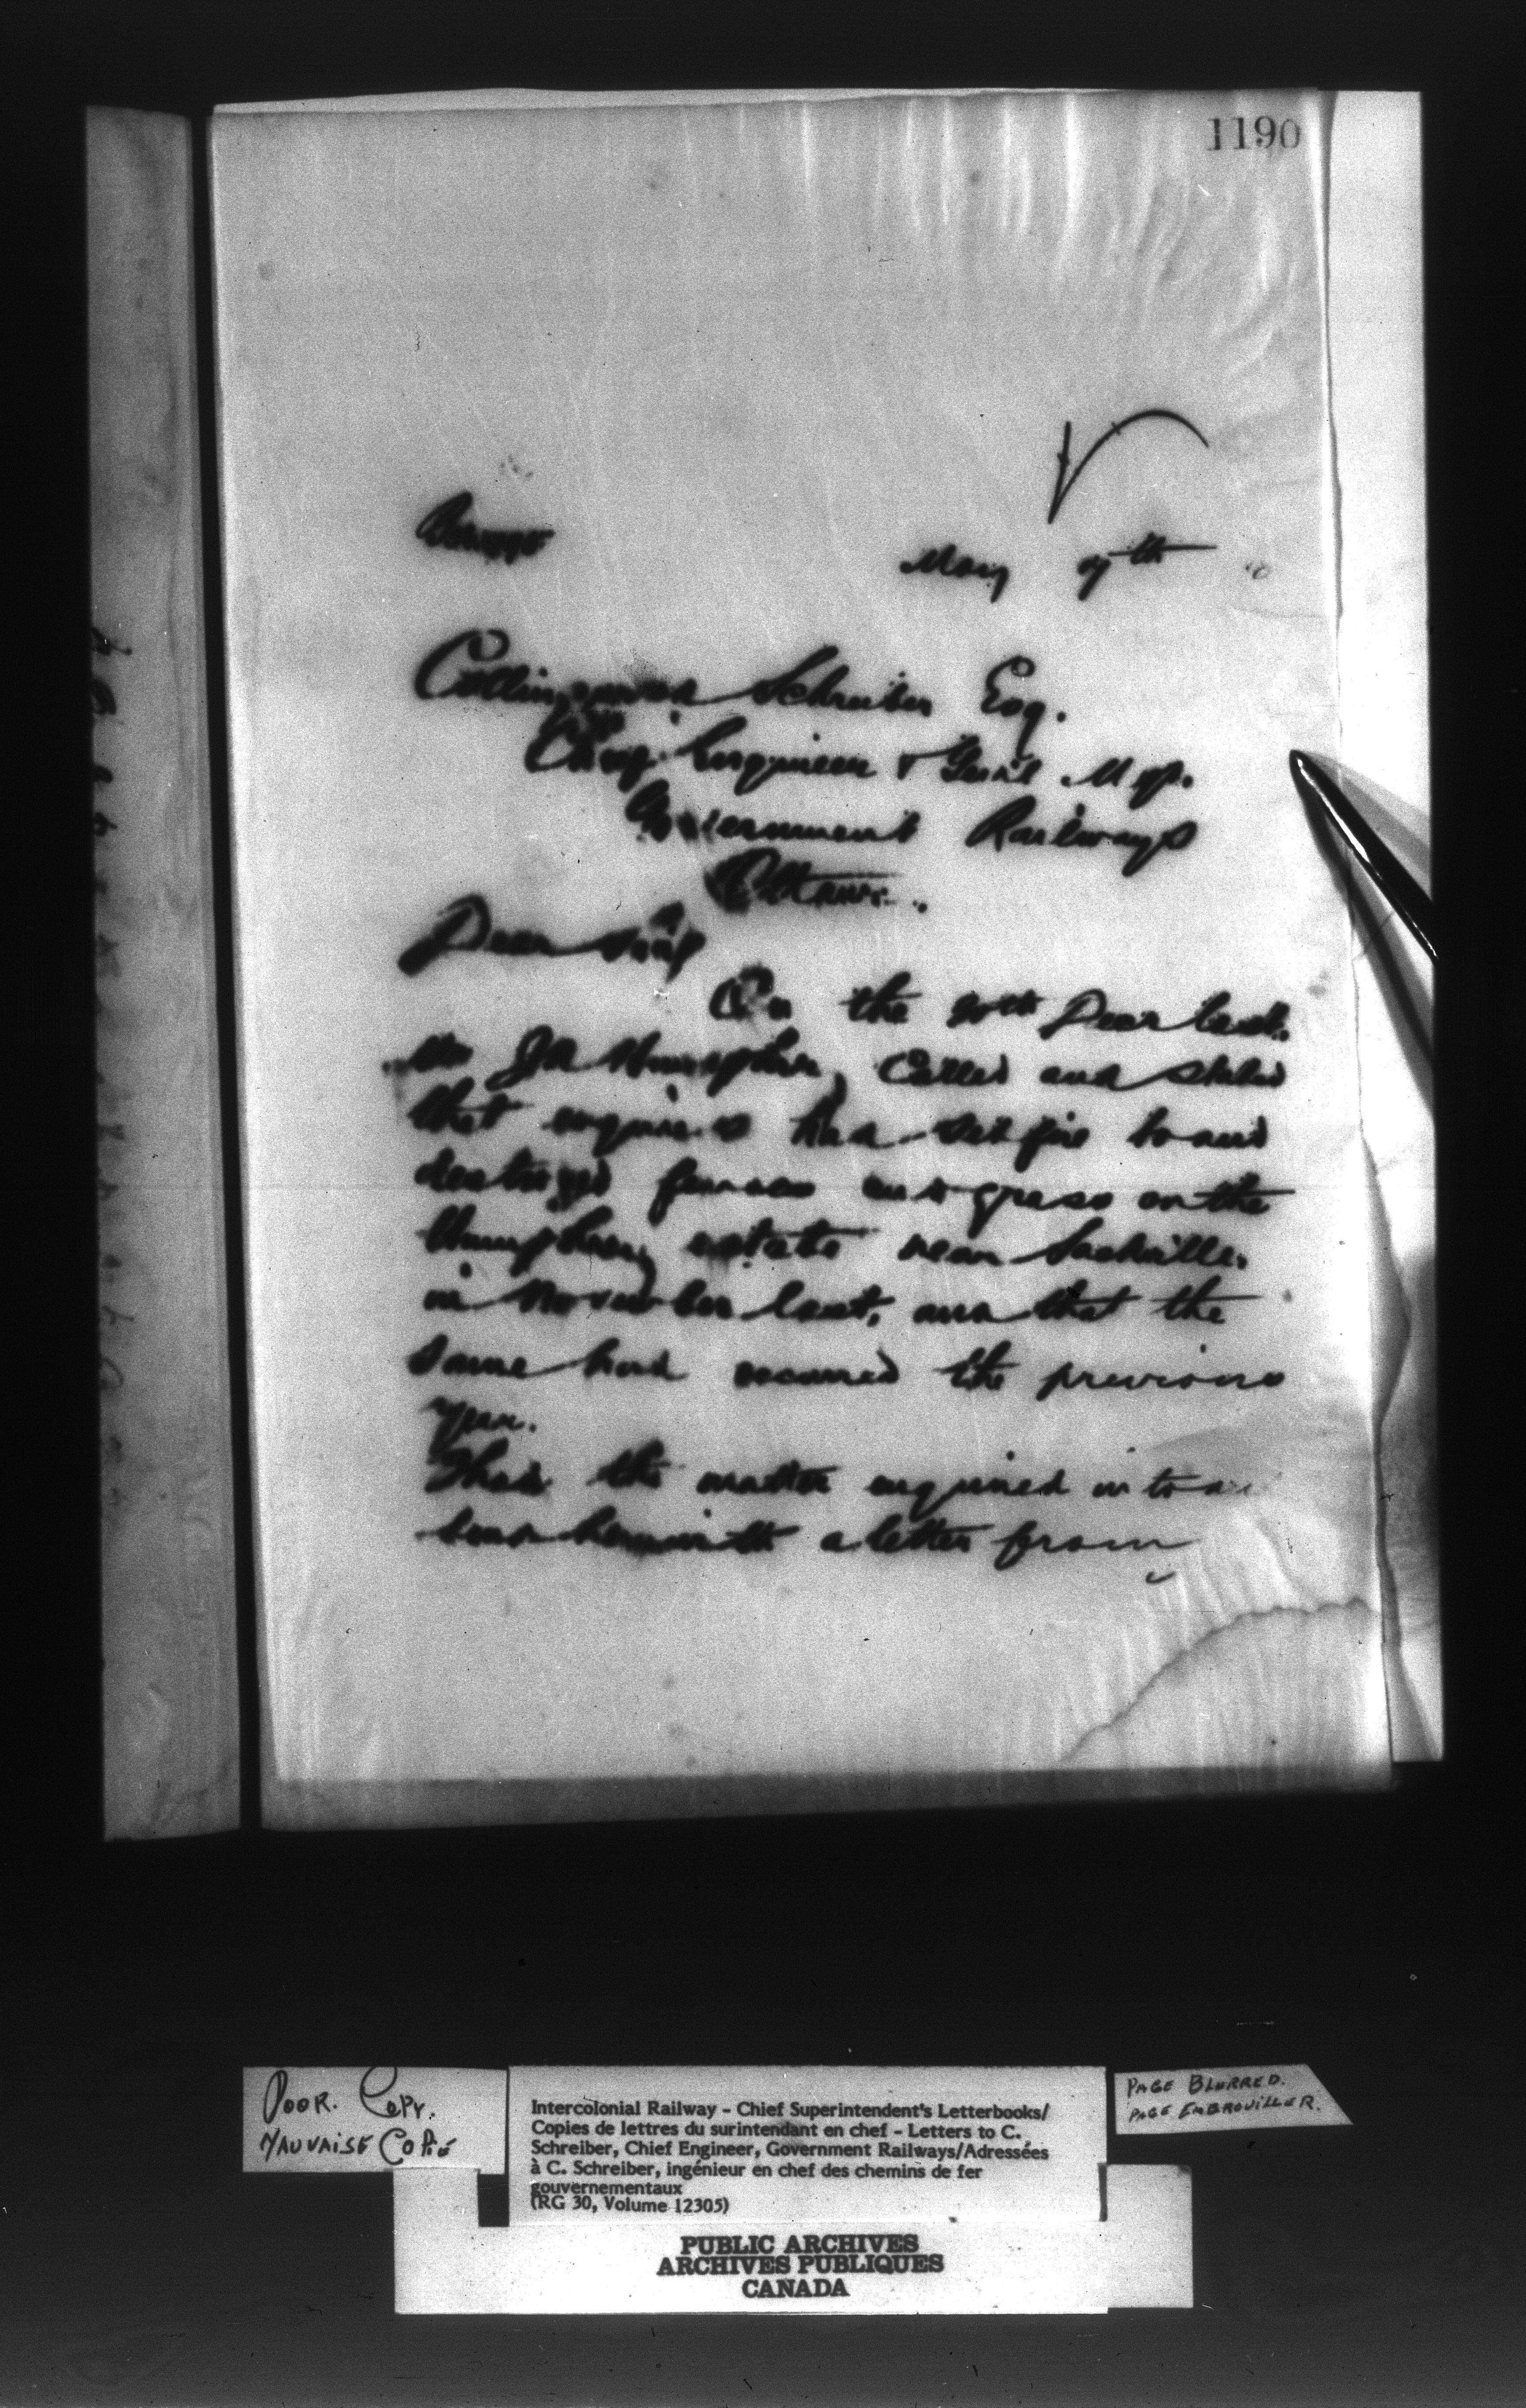 1190
May 7th
Collingwood Schreiber Esq.
Chief Engineer & Gen'l Mgr.
Government Railways
Ottawa.
Dear Sir
On the 20th Decr last.
Mr Humphrey called and stated
that engines had set fire to and
destroyed fences and grass on the
Humphrey estate near Sackville,
in November last, and that the
same had occurred the previous
year.
I had the matter enquired into
send herewith a letter from
POOR. COPY.
MAUVAISE COPIE
Intercolonial Railway - Chief Superintendent's Letterbooks/
Copies de lettres du surintendant en chef - Letters to C.
Schreiber, Chief Engineer, Government Railways/Adressées
à C. Schreiber, ingénieur en chef des chemins de fer
gouvernementaux
(RG 30, Volume 12305)
PAGE BLURRED.
PAGE EMBROUILLER.
PUBLIC ARCHIVES
ARCHIVES PUBLIQUES
CANADA